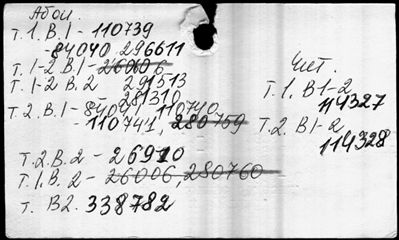 Абон.
Т.1.В.1 - 110739
- 84040 296611
Т.1-2 В.1 - 26006
Т.1-2 В.2 291513
- 281310
Т.2.В.1 - 84021, 110740
- 110741, 280759
Т.2.В.2 - 26910
Т.1.В.2 - 26006, 280760
Т. В2. 338782
Чит.
Т.1. В1-2
114327
Т.2. В1-2
114328